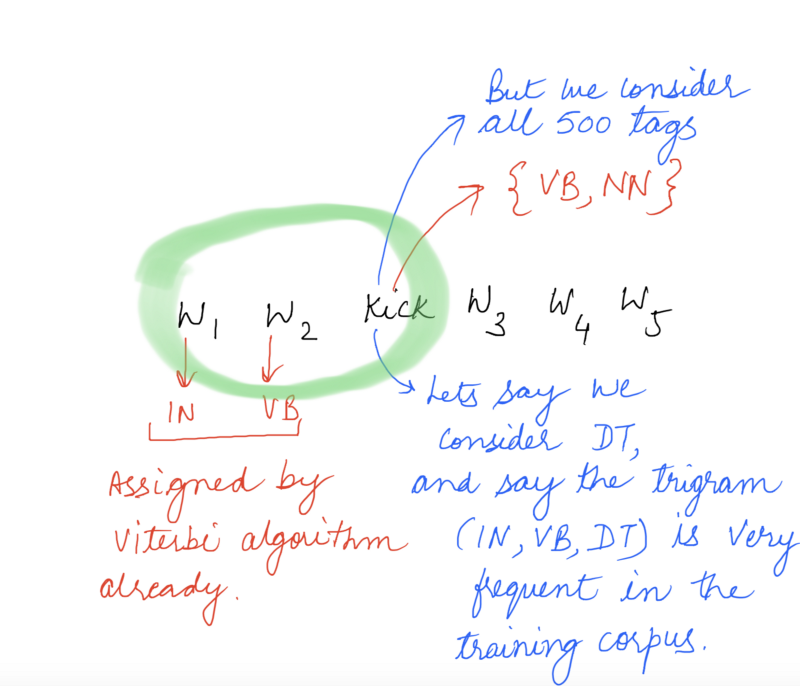 But we consider
all 500 tags
{VB, NN}
W1 W2 Kick W3 W4 W5
IN VB
Assigned by
Viterbi algorithm
already.
Lets say we
consider DT,
and say the trigram
(IN, VB, DT) is very
frequent in the
training corpus.